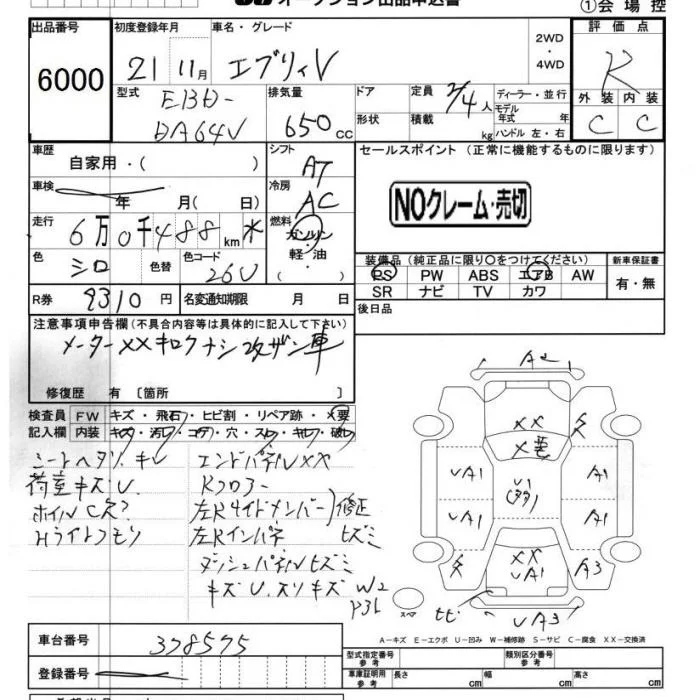 オークション出品申込書
①会場控
出品番号
6000
初度登録年月
21 11月
車名・グレード
エブリィV
2WD
・
4WD
評価点
R
外装 内装
C C
型式
EBD-
DA64V
排気量
650cc
ドア
形状
定員
2/4人
積載
kg
ディーラー・並行
モデル
年式 年
ハンドル 左・右
車歴
自家用・( )
シフト
AT
セールスポイント (正常に機能するものに限ります)
NOクレーム・売切
車検
年 月 ( 日)
冷房
AC
走行
6万0千488km
燃料
ガソリン
軽油
・
色
シロ
色替
色コード
26U
装備品 (純正品に限り〇をつけてください)
PS PW ABS エアB AW
SR ナビ TV カワ
新車保証書
有・無
R券
9310円
名変通知期限 月 日
後日品
注意事項申告欄(不具合内容等は具体的に記入して下さい)
メーターXXキロクナシ改ザン車
修復歴 有 〔箇所 〕
検査員
記入欄
FW キズ・飛石・ヒビ割・リペア跡・X要
内装 キズ・汚レ・コゲ・穴・スレ・キレ・破レ
シートヘタリ・キレ
荷室キズU.
Hライトクモリ
エンドパネルXX
Rフロアー
左Rサイドメンバー 修正
左Rインパネ ヒズミ
ダッシュパネルヒズミ
キズU.スリキズ W2
A2
XX
X要
UA1
UA1
U1
A1
A1
XX
UA1
A3
UA3
スペ
A－キズ E－エクボ U－凹み W－補修跡 S－サビ C－腐食 XX－交換済
車台番号
378575
登録番号
型式指定番号
参考
類別区分番号
参考
車庫証明用
参考
長さ cm
幅 cm
高さ cm